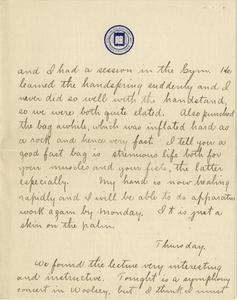 and I had a session in the Gym. He
learned the handspring suddenly and I
never did so well with the handstand,
so we were both quite elated. Also punched
the bag awhile, which was inflated hard as
a rock and hence very fast. I tell you a
good fast bag is strenuous life both for
your muscles and your fists, the latter
especially. My hand is now healing
rapidly and I will be able to do apparatus
work again by Monday. It is just a
skin on the palm.
Thursday.
We found the lecture very interesting
and instructive. Tonight is a symphony
concert in Woolsey, but I think I must